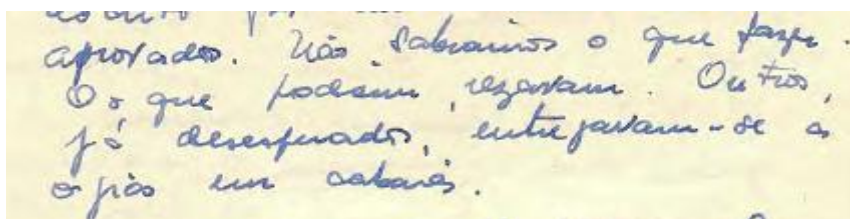 aprovados. Não sabíamos o que fazer.
Os que podiam, rezavam. Outros,
já desesperados, entregavam-se a
orgias em cabarés.